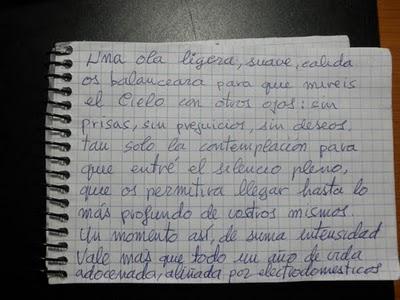 Una ola ligera, suave, calida
os balanceara para que mireis
el Cielo con otros ojos: sin
prisas, sin prejuicios, sin deseos,
tan solo la contemplación para
que entré el silencio pleno,
que os permitiva llegar hasta lo
más profundo de vostros mismos.
Un momento así, de suma intensidad
Vale mas que todo un año de vida
adocenada, aliñada por electrodomesticos